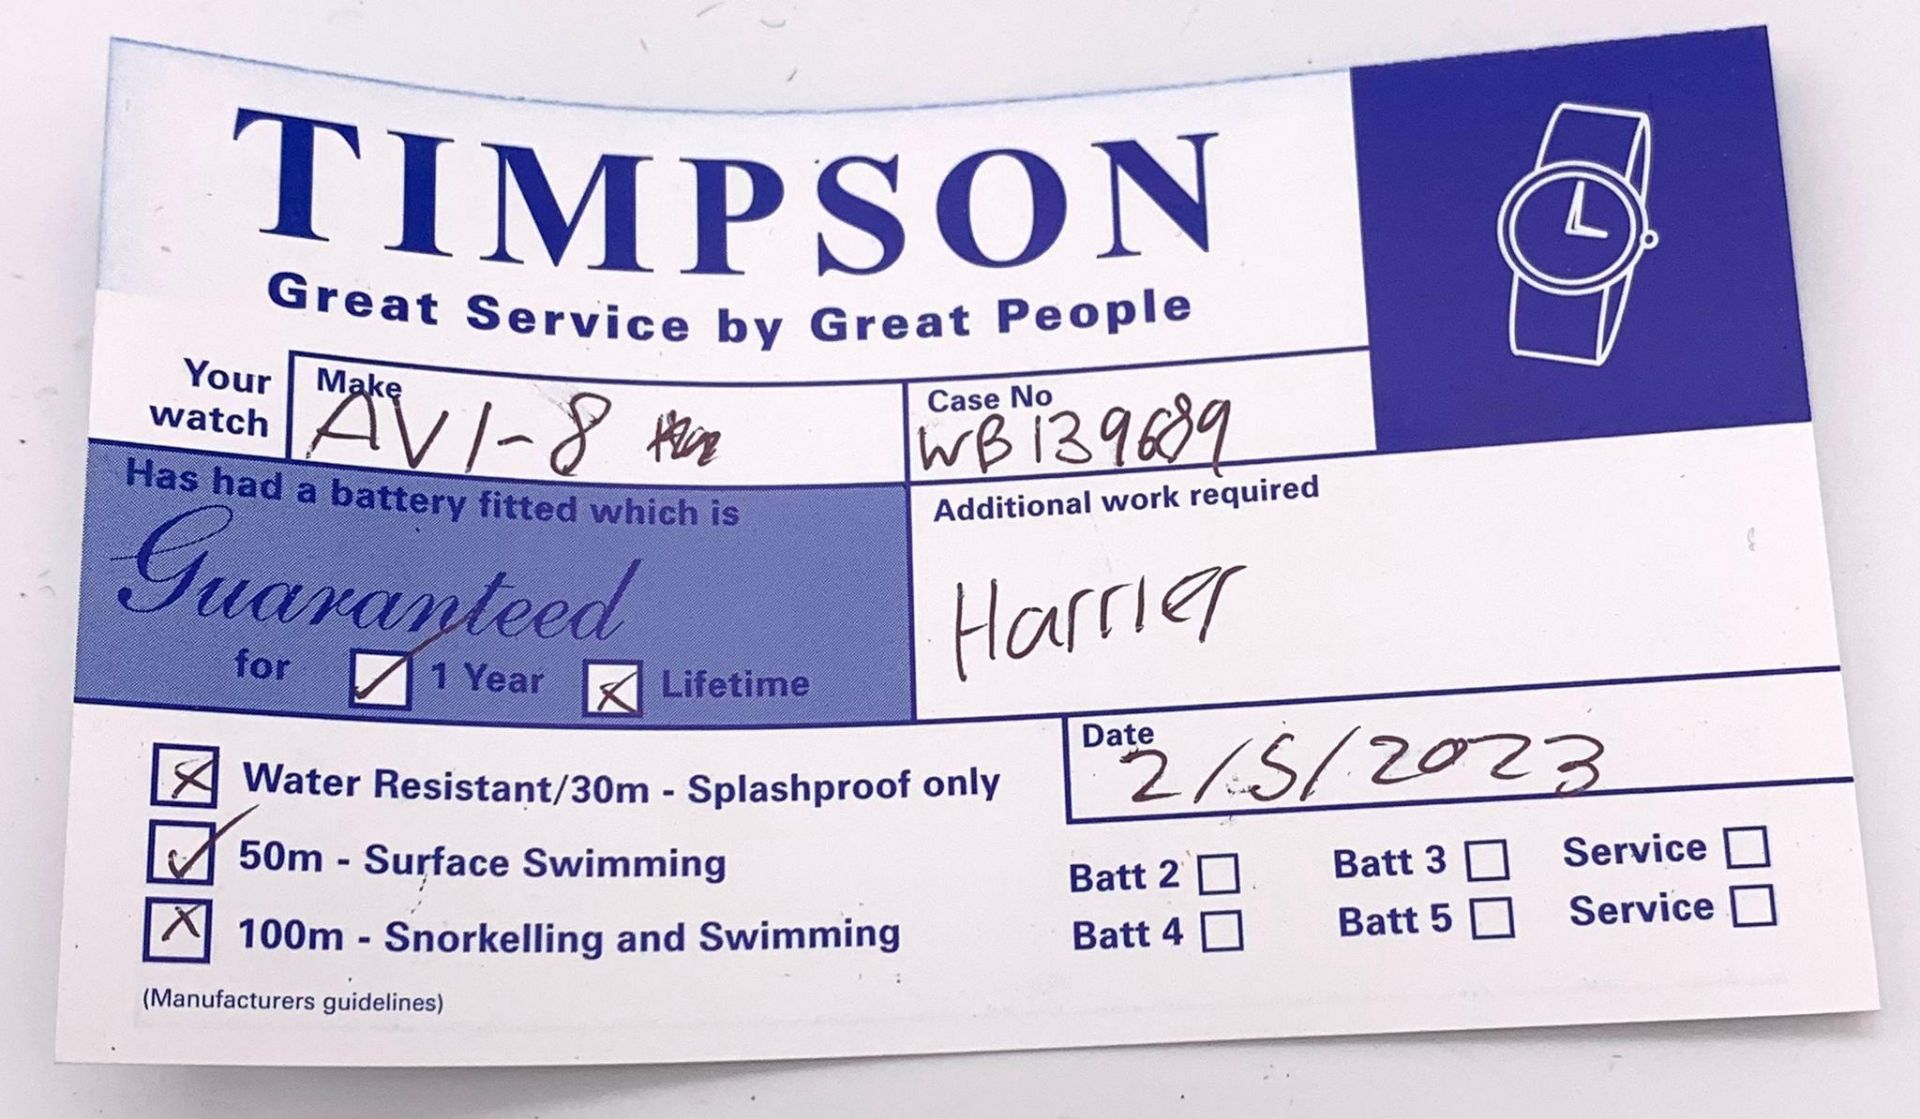 TIMPSON
Great Service by Great People
Your watch
Make
AVI-8
Case No
WB139689
Has had a battery fitted which is
Guaranteed
for 1 Year Lifetime
Additional work required
Harrier
Water Resistant/30m - Splashproof only
50m - Surface Swimming
100m - Snorkelling and Swimming
(Manufacturers guidelines)
Date
2/5/2023
Batt 2 Batt 3 Service
Batt 4 Batt 5 Service